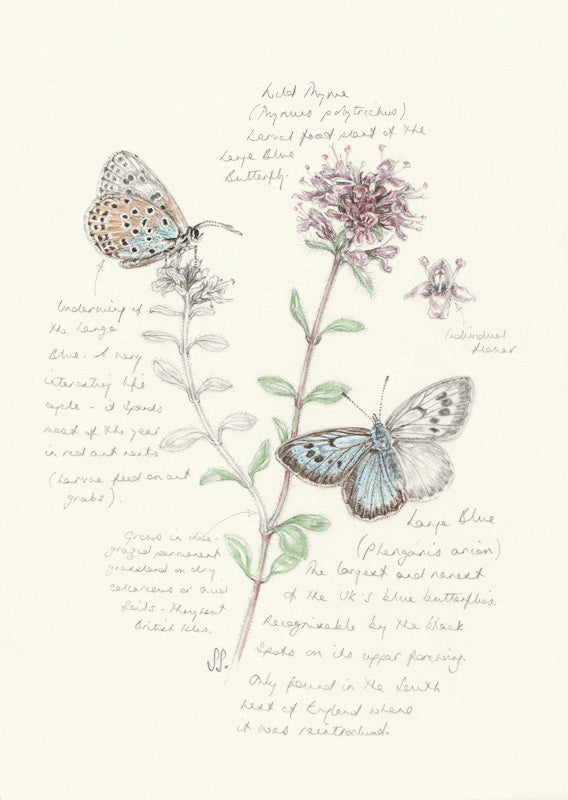 Wild Thyme
(Thymus polytrichus)
Larval food plant of the
Large Blue
Butterfly.
Individual
flower
Underwing of
the Large
Blue. A very
interesting life
cycle - it spends
most of the year
in red ant nests
(Larvae feed on ant
grubs).
Grows in close-
grazed permanent
grassland on dry
calcareous or acid
soils - throughout
British Isles.
Large Blue
(Phengaris arion)
The largest and rarest
of the UK's blue butterflies.
Recognisable by the black
spots on its upper forewing.
Only found in the South
West of England where
it was reintroduced.
SS.